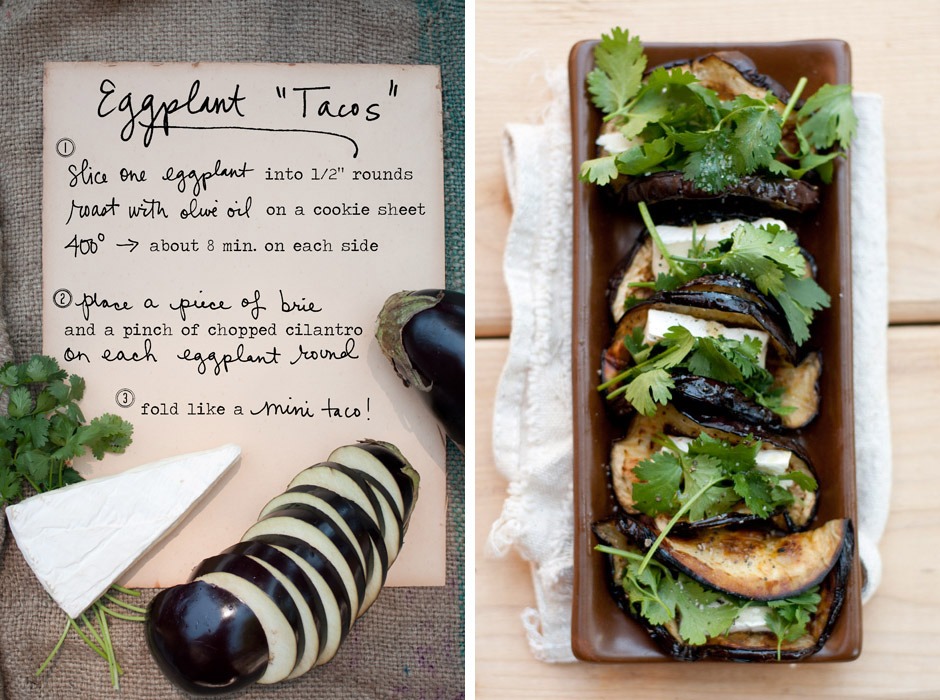 Eggplant "Tacos"
1
Slice one eggplant into 1/2" rounds
roast with olive oil on a cookie sheet
400° → about 8 min. on each side
2 place a piece of brie
and a pinch of chopped cilantro
on each eggplant round
3 fold like a mini taco!